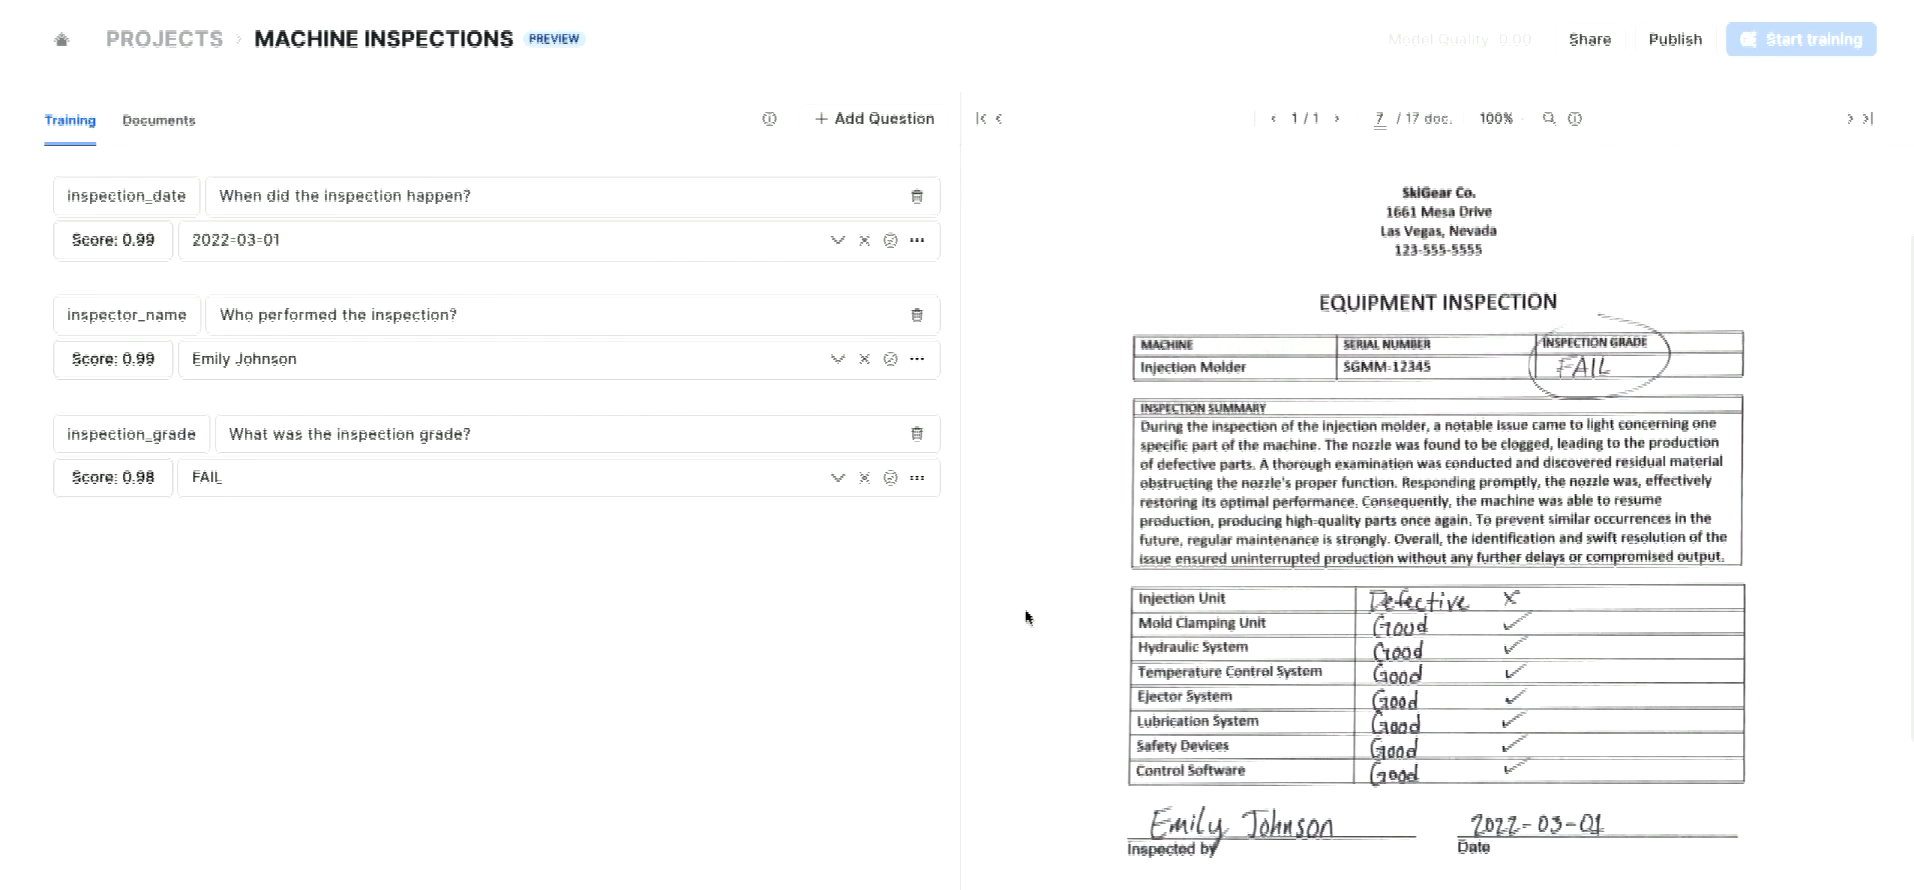 PROJECTS › MACHINE INSPECTIONS PREVIEW
Model Quality 0.00 Share Publish Start training
Training Documents + Add Question
inspection_date When did the inspection happen?
Score: 0.99 2022-03-01
inspector_name Who performed the inspection?
Score: 0.99 Emily Johnson
inspection_grade What was the inspection grade?
Score: 0.98 FAIL
1 / 1 7 / 17 doc. 100%
SkiGear Co.
1661 Mesa Drive
Las Vegas, Nevada
123-555-5555
EQUIPMENT INSPECTION
MACHINE SERIAL NUMBER INSPECTION GRADE
Injection Molder SGMM-12345 FAIL
INSPECTION SUMMARY
During the inspection of the injection molder, a notable issue came to light concerning one
specific part of the machine. The nozzle was found to be clogged, leading to the production
of defective parts. A thorough examination was conducted and discovered residual material
obstructing the nozzle's proper function. Responding promptly, the nozzle was, effectively
restoring its optimal performance. Consequently, the machine was able to resume
production, producing high-quality parts once again. To prevent similar occurrences in the
future, regular maintenance is strongly. Overall, the identification and swift resolution of the
issue ensured uninterrupted production without any further delays or compromised output.
Injection Unit Defective X
Mold Clamping Unit Good ✓
Hydraulic System Good ✓
Temperature Control System Good ✓
Ejector System Good ✓
Lubrication System Good ✓
Safety Devices Good ✓
Control Software Good ✓
Emily Johnson 2022-03-01
Inspected by Date